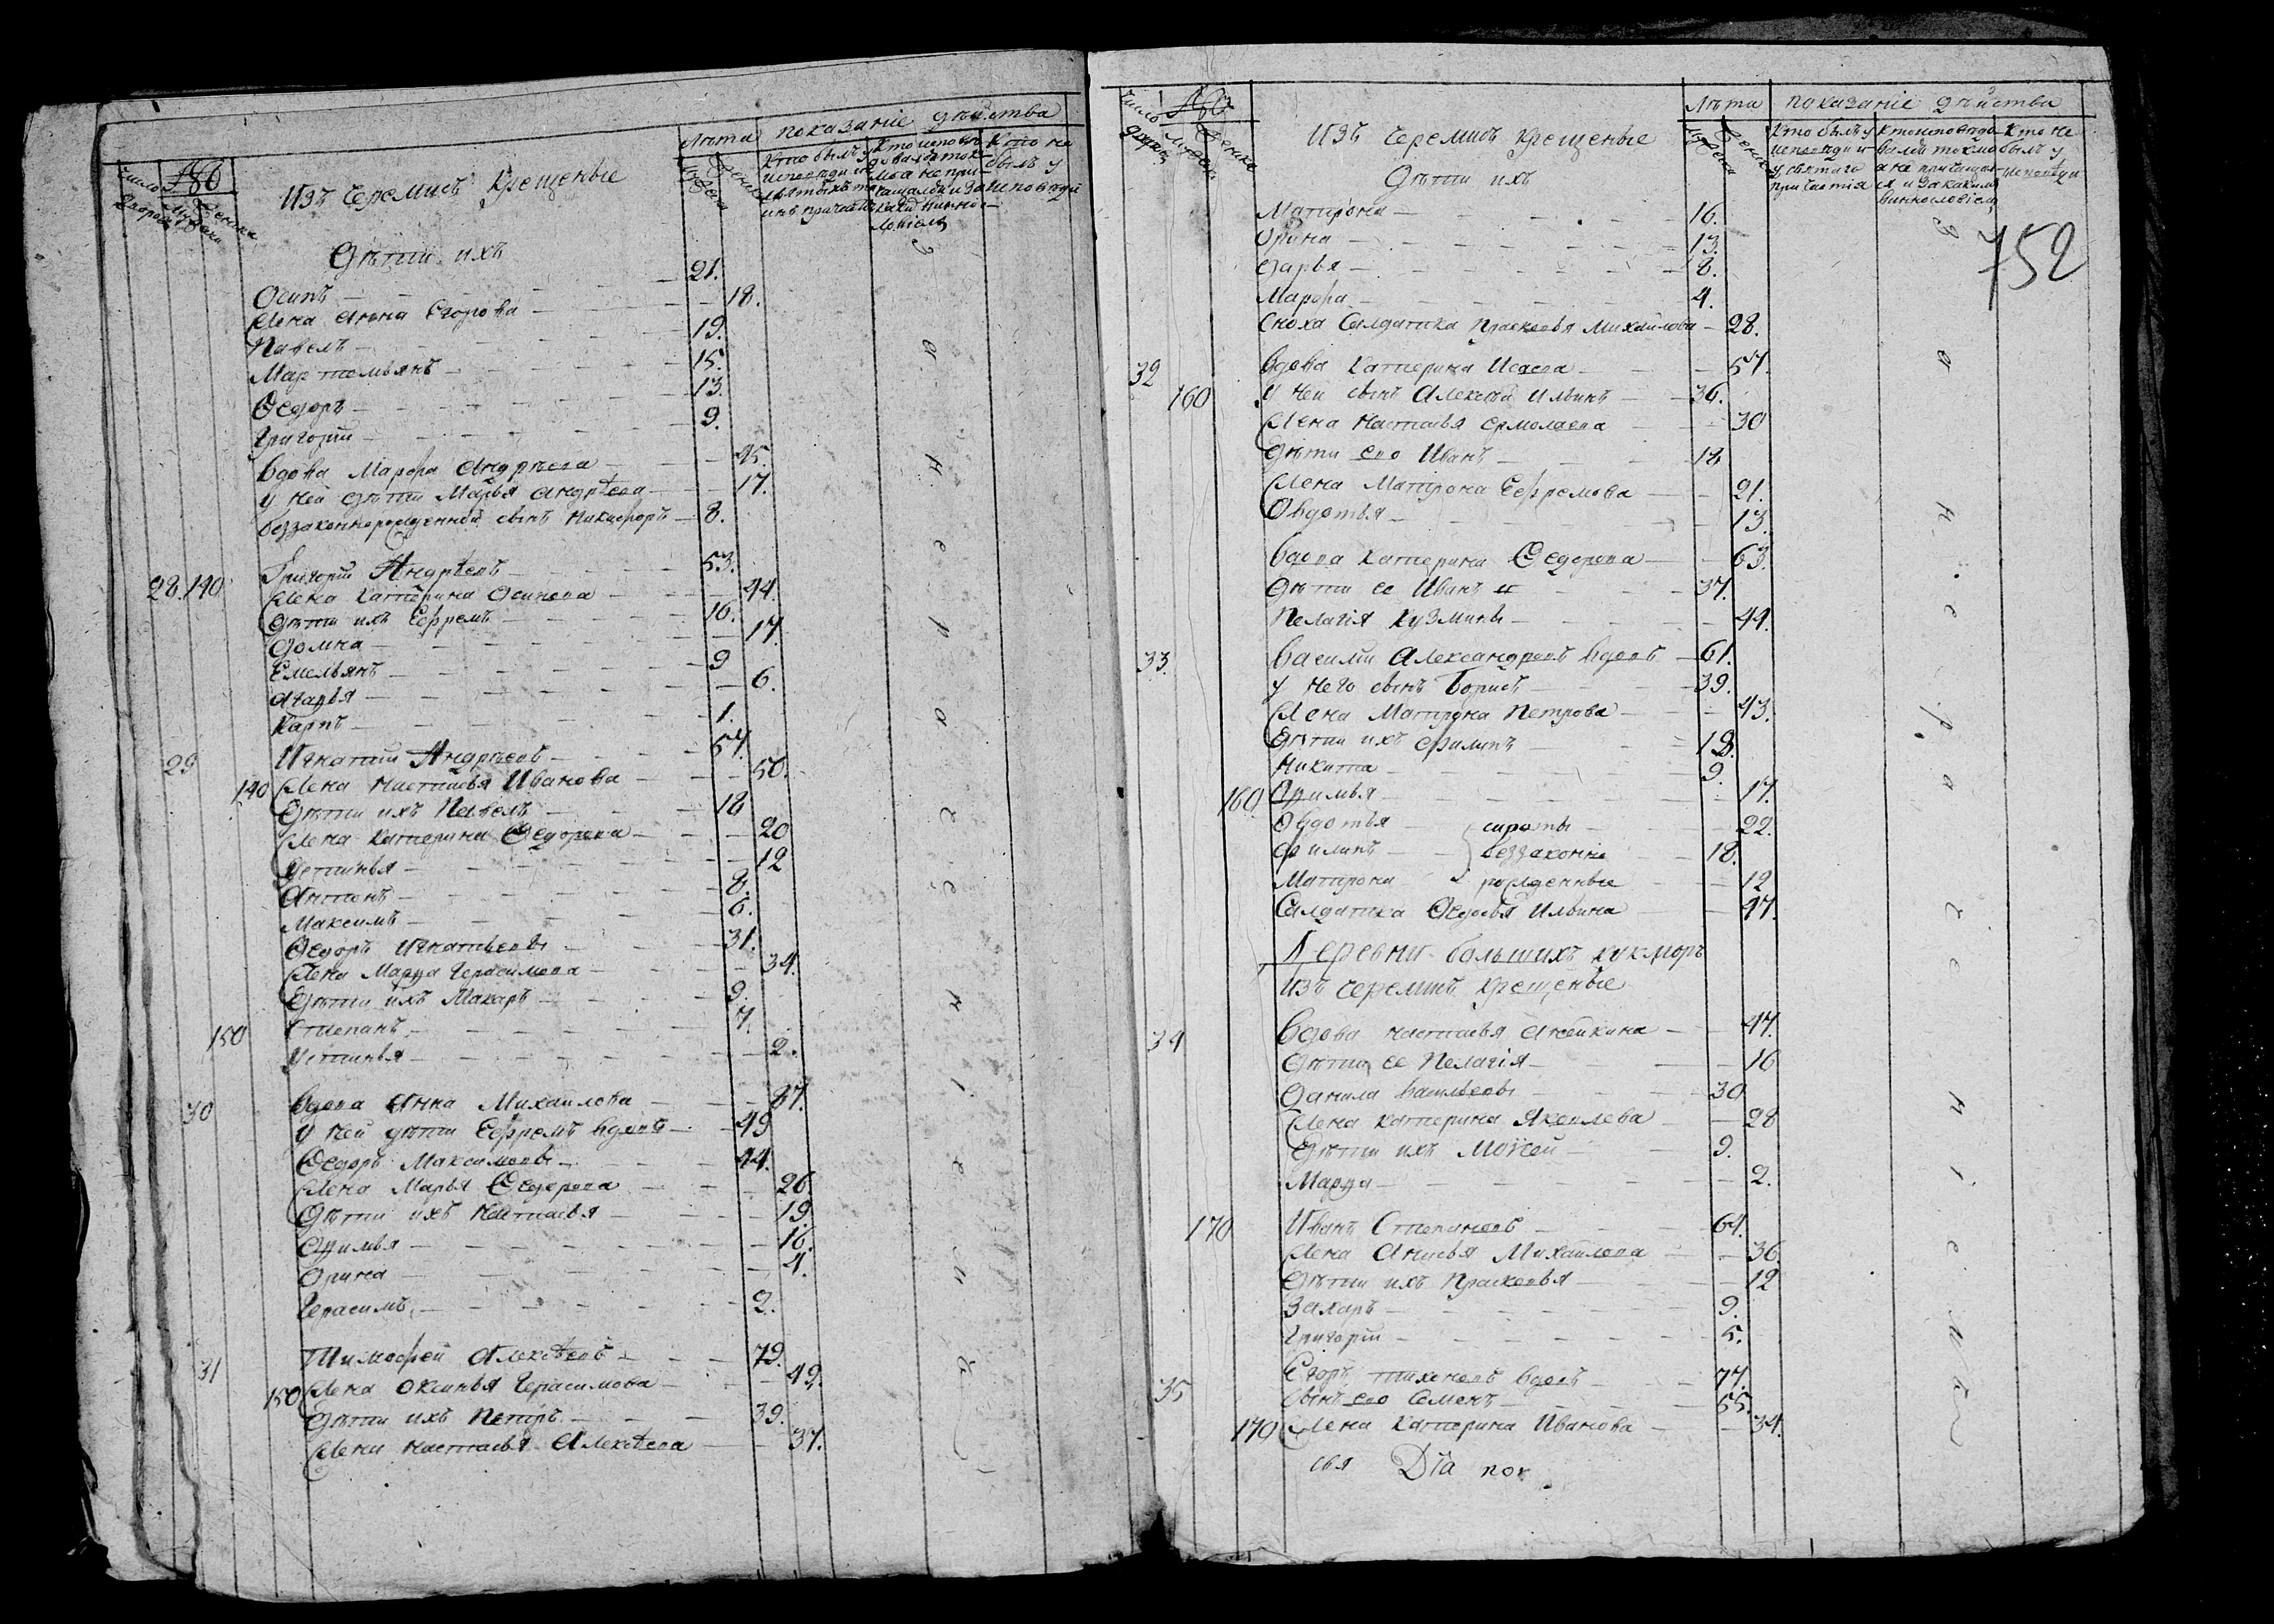 Число дворовъ
№
Мужска
Женска
Изъ Черемисъ крещеные
Лѣта
Мужеска
Женска
показанiе дѣйства
Кто былъ у исповѣди и святыхъ таинъ причастiя
Кто исповѣдовался токмо а не причащался и за какимъ винословiемъ
Кто не былъ у исповѣди
Дѣти ихъ
Осипъ 21.
Жена Анна Егорова 18.
Павелъ 19.
Мартемьянъ 15.
Ѳедоръ 13.
Григорiй 9.
Вдова Марфа Андрѣева 45.
у ней дѣти Марья Андрѣева 17.
беззаконнорожденной сынъ Никифоръ 8.
28. 140 Григорiй Андрѣевъ 53.
Жена Катерина Осипова 44.
Дѣти ихъ Ефремъ 16.
Домна 17.
Емельянъ 9
Агафья 6.
Карпъ 1.
29 Игнатiй Андрѣевъ 57.
140 Жена Настасья Иванова 50.
Дѣти ихъ Павелъ 18
Жена Катерина Ѳедорова 20
Устинья 12
Антонъ 8.
Максимъ 6.
Ѳедоръ Игнатьевъ 31.
Жена Марфа Герасимова 34.
Дѣти ихъ Макаръ 9.
150 Степанъ 7.
Устинья 2.
30 Вдова Анна Михаилова 87.
У ней дѣти Ефремъ вдовъ 49
Ѳедоръ Максимовы 44.
Жена Марья Ѳедорова 26.
Дѣти ихъ Настасья 19.
Афимья 16.
Орина 4.
Герасимъ 2.
31 Тимофей Алексѣевъ 79.
150 Жена Оксинья Герасимова 49.
Дѣти ихъ Петръ 39.
Жена Настасья Алексѣева 37.
За нерасте нiемъ
Число дворовъ
№
Мужска
Женска
Изъ Черемисъ крещеные
Лѣта
Мужеска
Женска
показанiе дѣйства
Кто былъ у исповѣди и у святаго причастiя
Кто исповѣдовался токмо а не причащался и за какимъ винословiемъ
Кто не былъ у исповѣди
752
Дѣти ихъ
Матрона 16.
Орина 13.
Дарья 8.
Марфа 4.
Сноха Салдатка Прасковья Михаилова 28.
32 Вдова Катерина Исаева 57.
160 У ней сынъ Алексѣй Ильинъ 36.
Жена Настасья Ермолаева 30
Дѣти ево Иванъ 18
Жена Матрона Ефремова 21.
Овдотья 13.
Вдова Катерина Ѳедорова 63.
Дѣти ее Иванъ и 37.
Пелагiя Кузмины 44.
33. Василiй Александровъ вдовъ 61.
у него сынъ Борисъ 39.
Жена Матрона Петрова 43.
Дѣти ихъ Филипъ 18.
Никита 9.
160 Афимья 17.
Овдотья сироты 22.
Филипъ беззаконно 18.
Матрона рожденные 12
Салдатка Ѳедосья Ильина 47.
Деревни большихъ кукморъ
Изъ Черемисъ крещеные
34 Вдова Настасья Аксикина 47.
Дѣти ее Пелагiя 16
Данила Васильевы 30
Жена Катерина Яковлева 28
Дѣти ихъ Моѵсей 9.
Марфа 2.
170 Иванъ Степановъ 64.
Жена Анисья Михаилова 36.
Дѣти ихъ Прасковья 12
Захаръ 9.
Григорiй 5.
35 Егоръ Тихоновъ вдовъ 77.
Сынъ ево Семенъ 55.
170 Жена Катерина Иванова 34.
свя Дiа пок